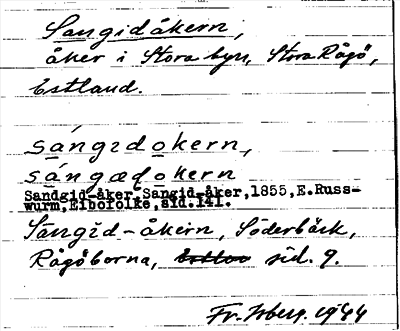 Sangidåkern,
åker i Stora byn, Stora Rågö,
Estland.
sángıdo̲kern,
sángædo̲kern
Sandgid-åker, Sangid-åker, 1855, E. Russ-
wurm, Eibofolke, sid. 141.
Sangid-åkern, Söderbäck,
Rågöborna, sid. 9.
Fr. Isberg. 1944